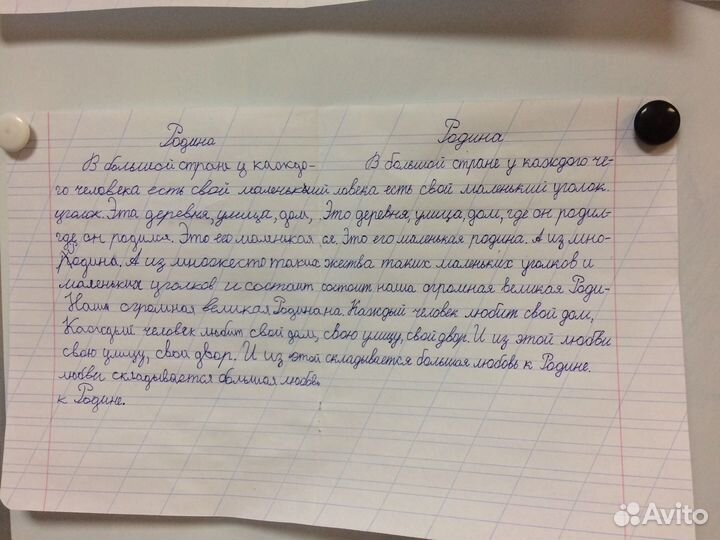 Родина
В большой стране у каждо-
го человека есть свой маленький
уголок. Эта деревня, улица, дом,
где он родился. Это его малянкая
Родина. А из множесто таких
маленьких уголков и состаит
Наша огромная великая Родина
Каждый человек любит свой дом,
свою улицу, свой двор. И из этой
любви складывается большая любовь
к Родине.
Родина
В большой стране у каждого че-
ловека есть свой маленький уголок.
Это деревня, улица, дом, где он родил-
ся. Это его маленькая родина. А из мно-
жества таких маленьких уголков и
состоит наша огромная великая Роди-
на. Каждый человек любит свой дом,
свою улицу, свой двор. И из этой любви
складывается большая любовь к Родине.
Avito